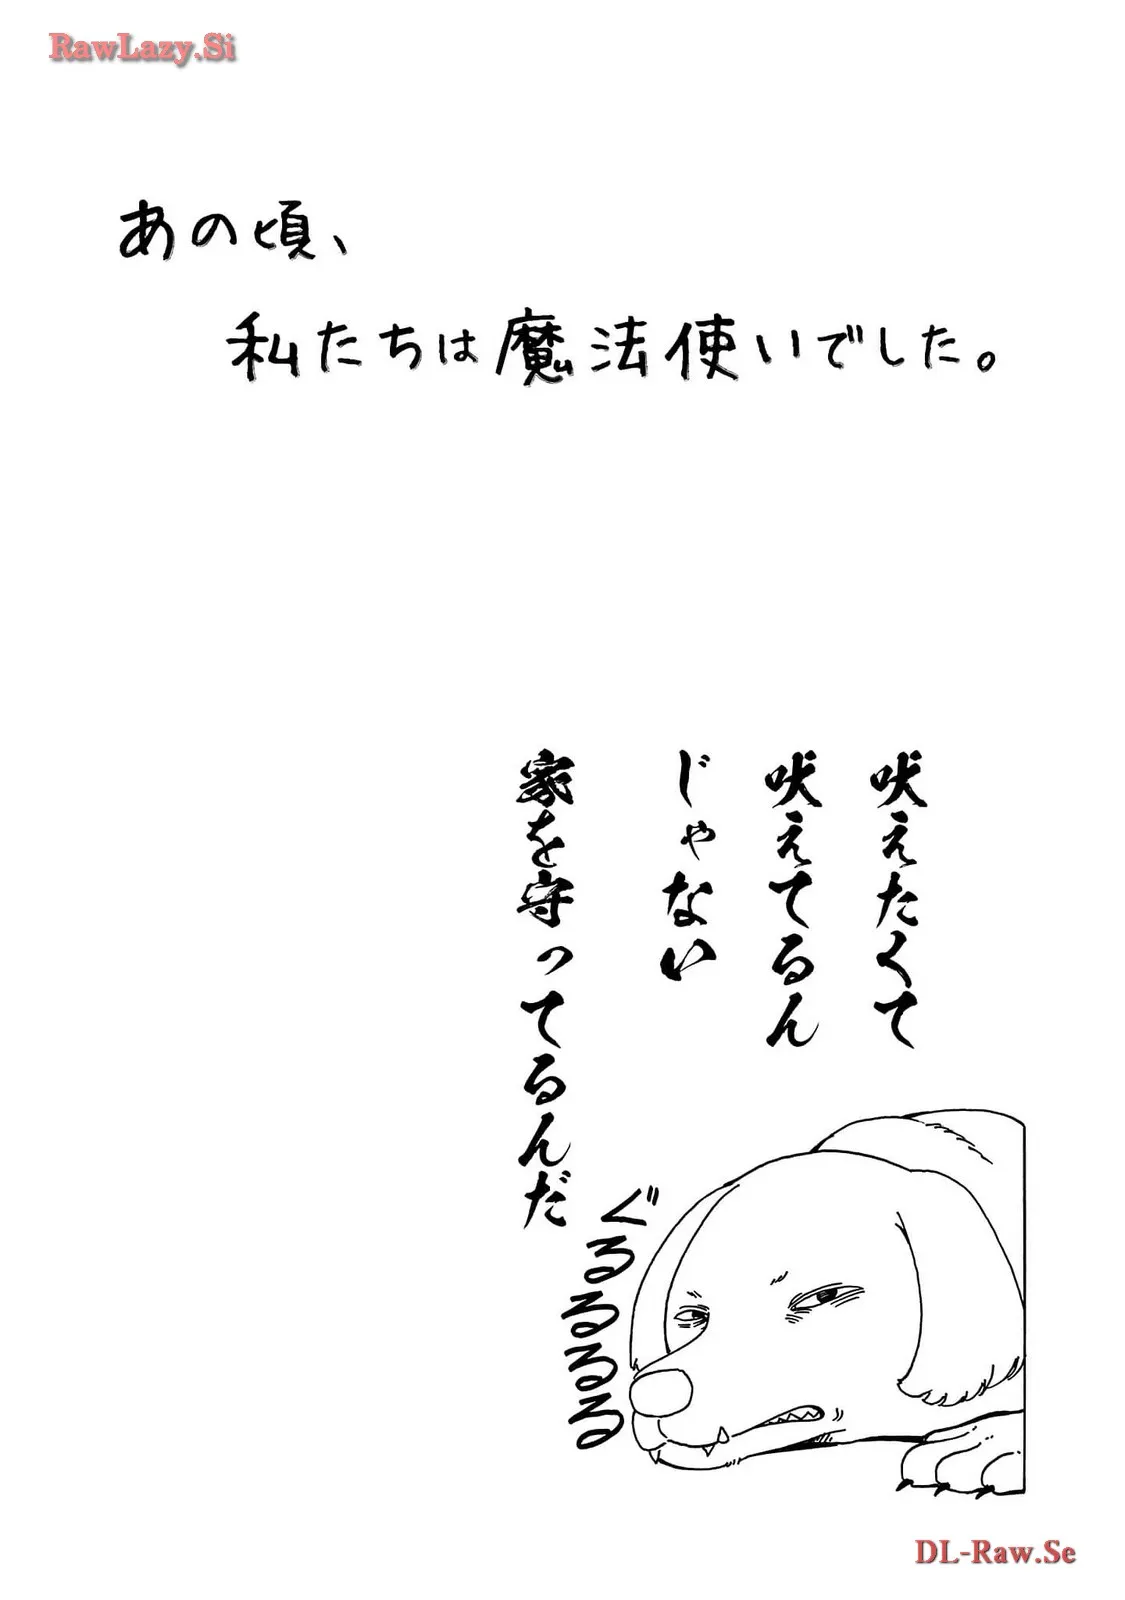 RawLazy.Si
あの頃、
私たちは魔法使いでした。
吠えたくて
吠えてるん
じゃない
家を守ってるんだ
ぐるるるる
DL-Raw.Se